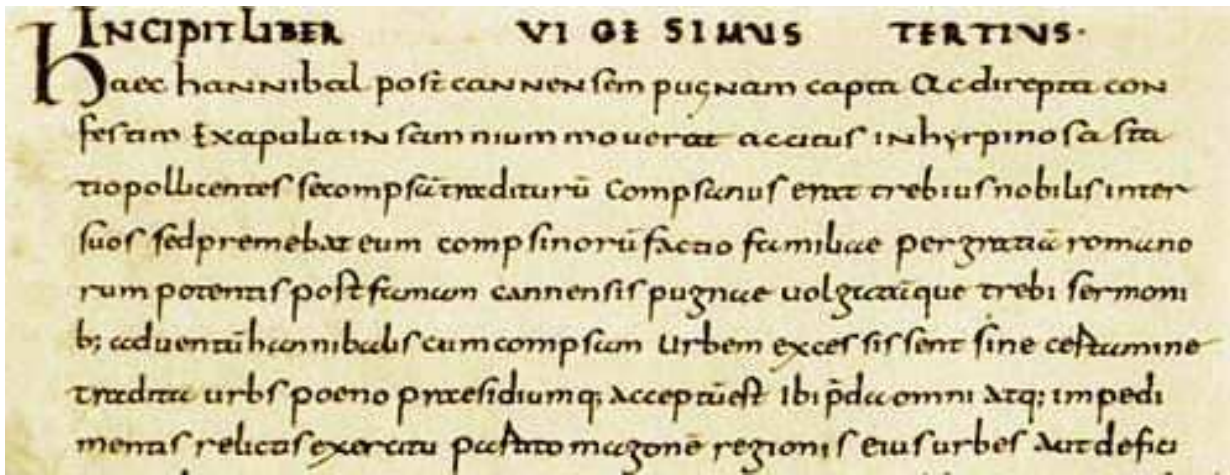 INCIPIT LIBER VIGESIMUS TERTIUS·
haec hannibal post cannensem pugnam capta Ac direpta con
festim Exapulia in samnium mouerat accitus in hyrpinos a sta
tio pollicentes se compsā traditurū Compsanus erat trebius nobilis inter
suos sed premebat eum compsinorū factio familiae per gratiā romano
rum potentis post famam cannensis pugnae uolgatāque trebi sermoni
b; aduentū hannibalis cum compsam Urbem excessissent sine certamine
tradita urbs poeno praesidiumq; acceptū est Ibi p̄da omni atq; impedi
mentis relictis exercitu partito magonē regionis eius urbes aut defici